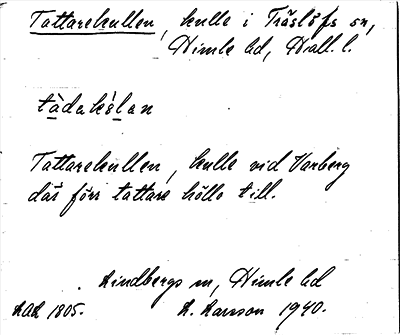 Tattarekullen, kulle i Träslöfs sn,
Himle hd, Hall. l.
tàdakö́lan
Tattarekullen, kulle vid Varberg
där förr tattare höllo till.
Lindbergs sn, Himle hd
LAL 1805. A. Larsson 1940.